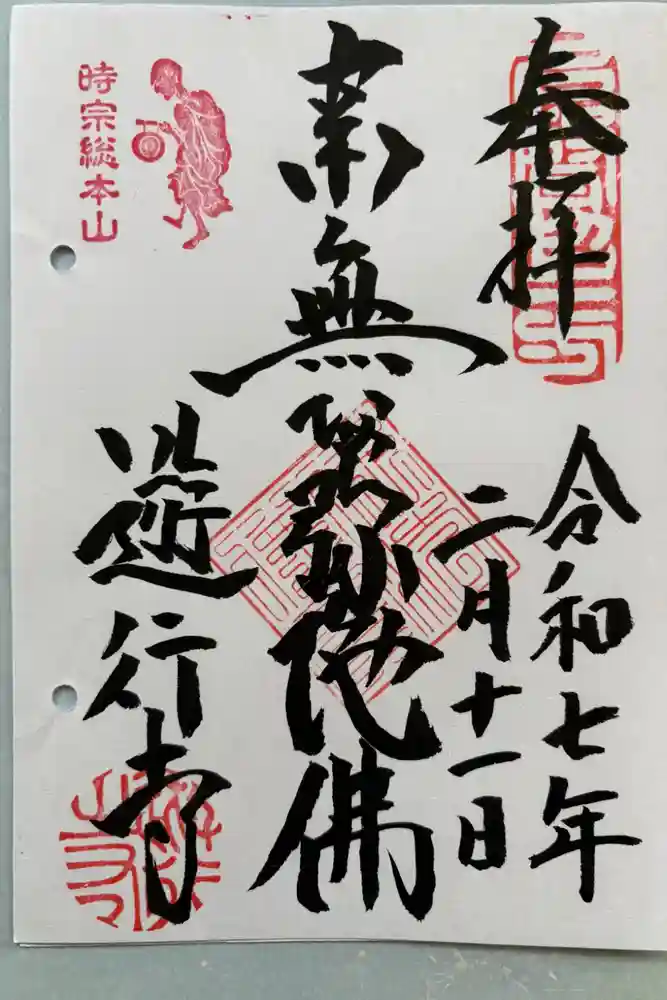 奉拝
令和七年
二月十一日
南無阿弥陀佛
遊行寺
時宗総本山